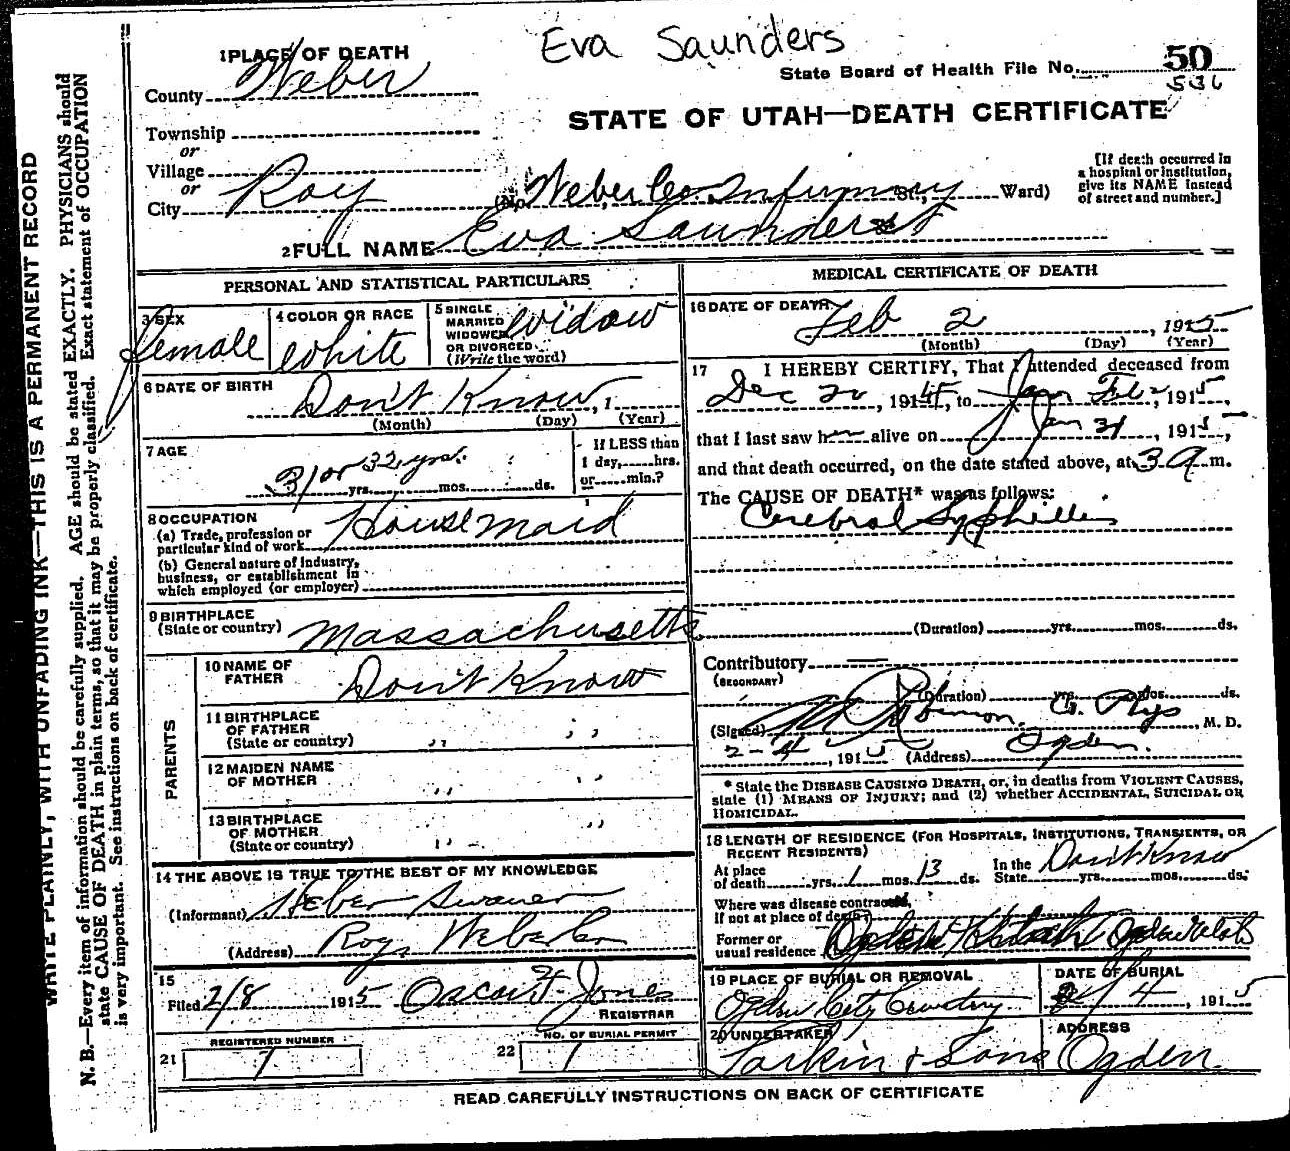 Eva Saunders
1 PLACE OF DEATH
State Board of Health File No. 50
536
County Weber
STATE OF UTAH—DEATH CERTIFICATE
Township
or
Village
or
City Roy
(No. Weber Co. Infirmary St., Ward)
[If death occurred in
a hospital or institution,
give its NAME instead
of street and number.]
2 FULL NAME Eva Saunders
PERSONAL AND STATISTICAL PARTICULARS
3 SEX
female
4 COLOR OR RACE
white
5 SINGLE
MARRIED
WIDOWED
OR DIVORCED.
(Write the word)
widow
6 DATE OF BIRTH
Don't Know, 1
(Month) (Day) (Year)
7 AGE
31 or 32 yrs.
yrs. mos. ds.
If LESS than
1 day, hrs.
or min.?
8 OCCUPATION
(a) Trade, profession or
particular kind of work House maid
(b) General nature of industry,
business, or establishment in
which employed (or employer)
9 BIRTHPLACE
(State or country) Massachusetts
PARENTS
10 NAME OF
FATHER Don't Know
11 BIRTHPLACE
OF FATHER
(State or country) " "
12 MAIDEN NAME
OF MOTHER " "
13 BIRTHPLACE
OF MOTHER
(State or country) " "
14 THE ABOVE IS TRUE TO THE BEST OF MY KNOWLEDGE
(Informant) Heber
(Address) Roy, Weber Co
15
Filed 2/8 1915 Oscar Jones
REGISTRAR
REGISTERED NUMBER
21 7
NO. OF BURIAL PERMIT
22 1
MEDICAL CERTIFICATE OF DEATH
16 DATE OF DEATH
Feb 2, 1915
(Month) (Day) (Year)
17 I HEREBY CERTIFY, That I attended deceased from
Dec 20, 1914, to Jan Feb 2, 1915,
that I last saw her alive on Jan 31, 1915,
and that death occurred, on the date stated above, at 3 A m.
The CAUSE OF DEATH* was as follows:
Cerebral Syphillis
(Duration) yrs. mos. ds.
Contributory
(SECONDARY)
(Duration) yrs. mos. ds.
(Signed) Robinson Co. Phys, M. D.
2-4, 1915 (Address) Ogden.
* State the DISEASE CAUSING DEATH, or, in deaths from VIOLENT CAUSES,
state (1) MEANS OF INJURY; and (2) whether ACCIDENTAL, SUICIDAL OR
HOMICIDAL.
18 LENGTH OF RESIDENCE (FOR HOSPITALS, INSTITUTIONS, TRANSIENTS, OR
RECENT RESIDENTS)
At place
of death yrs. 1 mos. 13 ds.
In the
State Don't Know yrs. mos. ds.
Where was disease contracted,
if not at place of death?
Former or
usual residence Ogden Utah
19 PLACE OF BURIAL OR REMOVAL
Ogden City Cemetery
DATE OF BURIAL
2/4, 1915
20 UNDERTAKER
Larkin & Sons
ADDRESS
Ogden.
READ CAREFULLY INSTRUCTIONS ON BACK OF CERTIFICATE
WRITE PLAINLY, WITH UNFADING INK—THIS IS A PERMANENT RECORD
N. B.—Every item of information should be carefully supplied. AGE should be stated EXACTLY. PHYSICIANS should
state CAUSE OF DEATH in plain terms, so that it may be properly classified. Exact statement of OCCUPATION
is very important. See instructions on back of certificate.